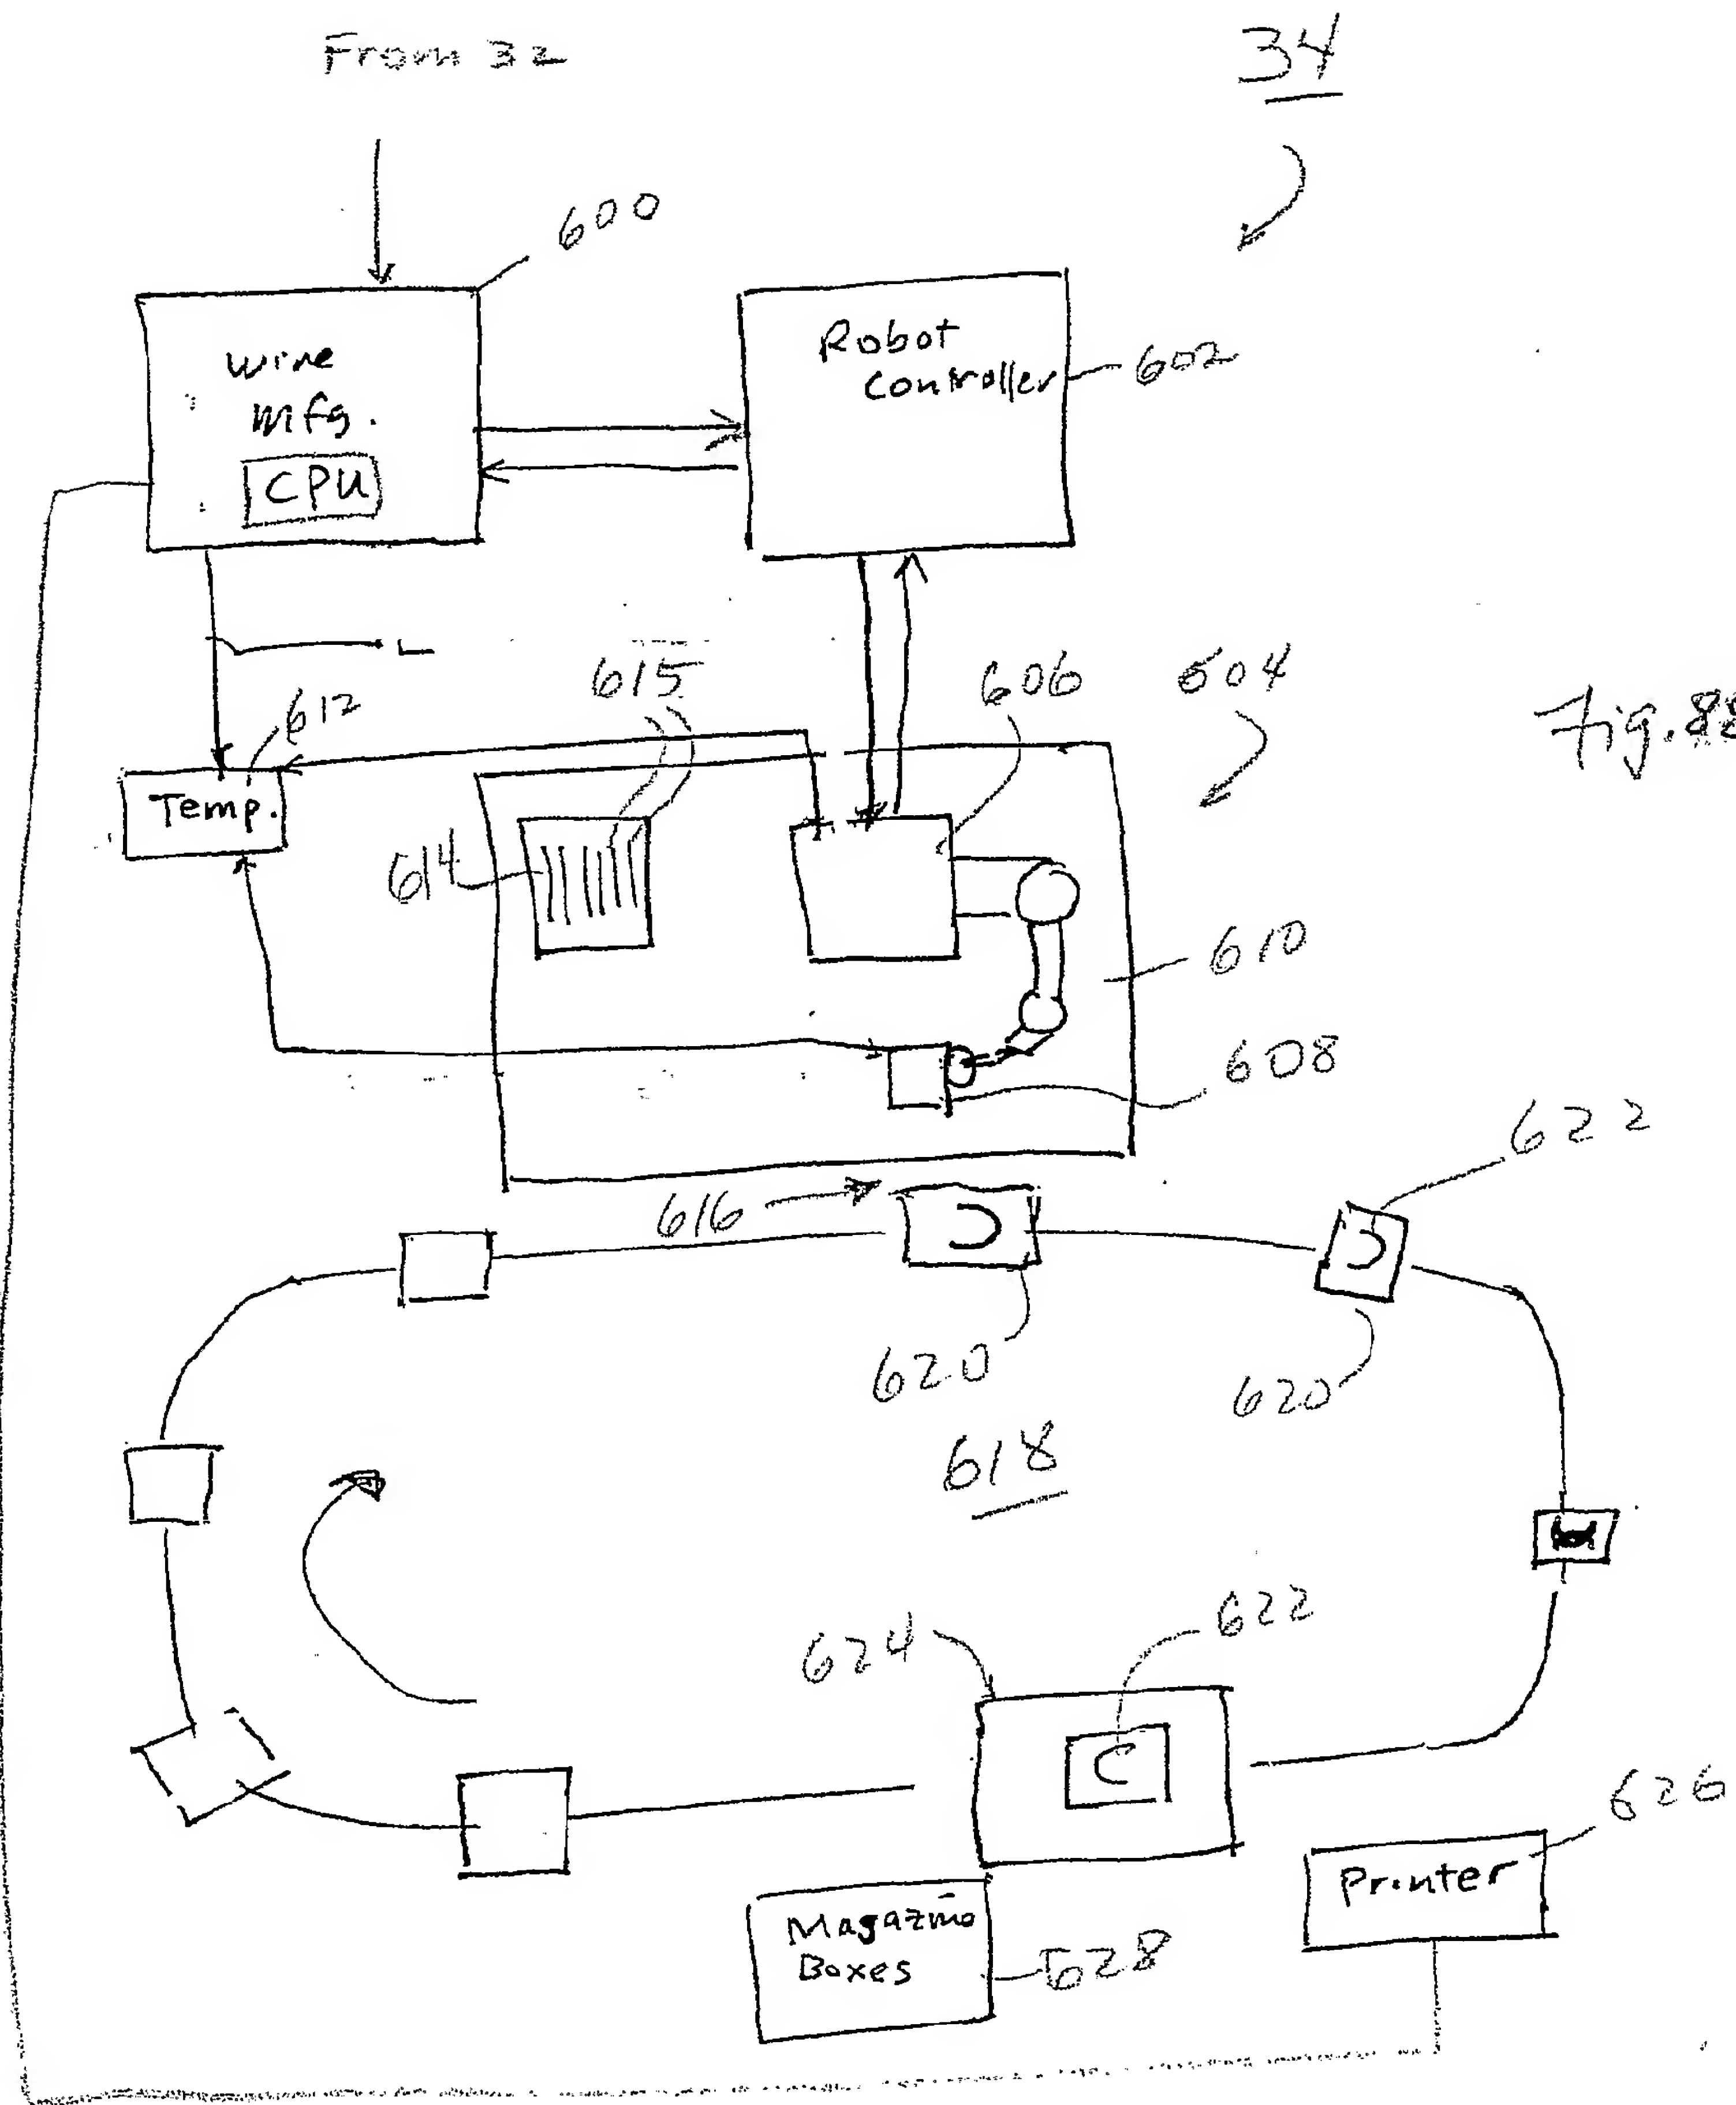 From 32
34
600
wire
mfg.
CPU
Robot
Controller
602
L
615
606
604
612
Temp.
614
610
608
622
616
620
620
618
624
622
626
Printer
Magazine
Boxes
628